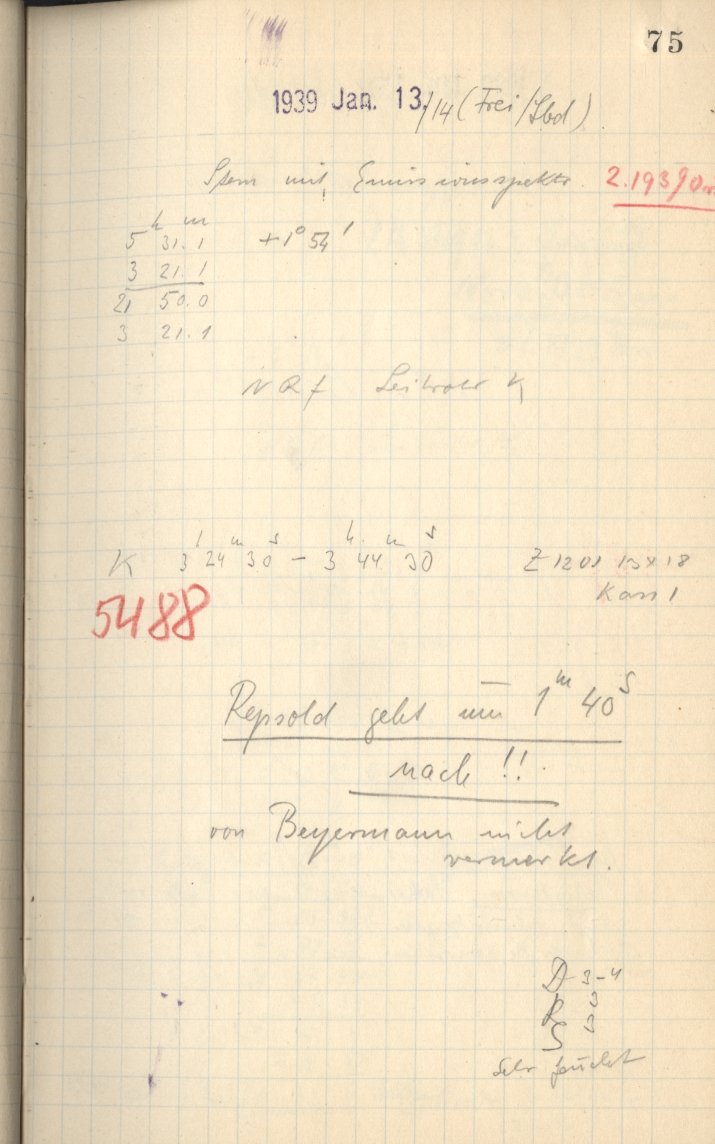 75
1939 Jan. 13./14 (Frei/Sbd)
Stern mit Emissionsspektr. 2.1939 Ori
5h 31.1m +1° 54'
3 21.1
21 50.0
3 21.1
NRf Leitrohr K
K 3h 24m 30s – 3h 44m 30s Z 1201 13×18
5488 Kass 1
Repsold geht um 1m 40s
nach !!
von Beyermann nicht
vermerkt.
D 3-4
R
S
Sehr feucht